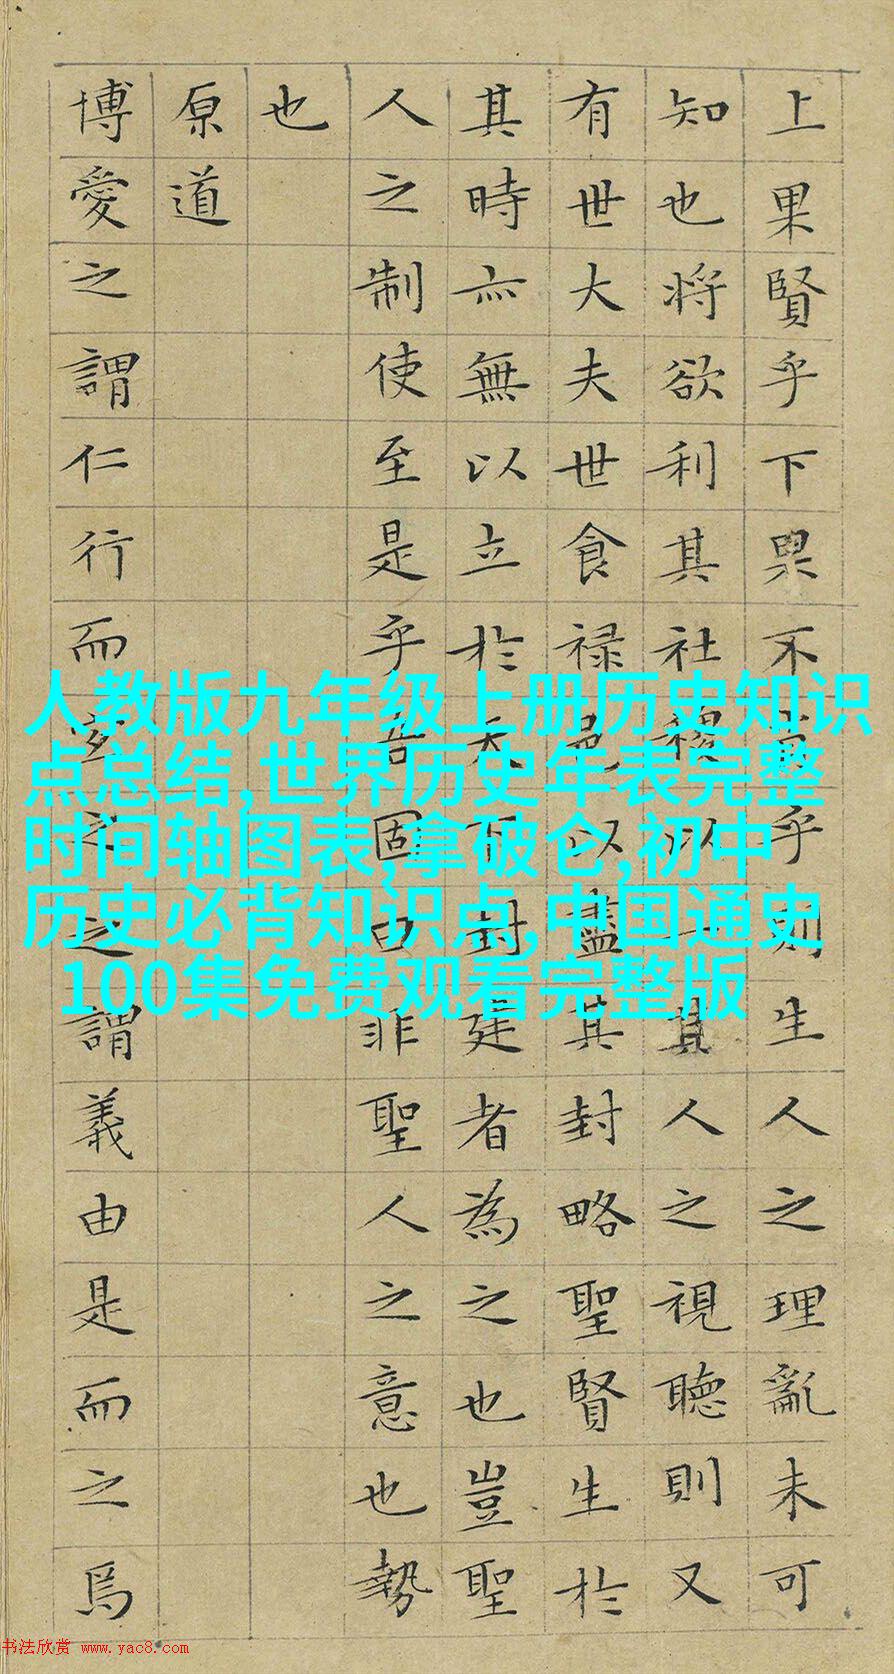 上果賢乎下果不肖乎則生人之理亂未可
知也將欲利其社稷以一其人之視聽則又
有世大夫世食祿邑以盡其封略聖賢生於
其時亦無以立於天下封建者為之也豈聖
人之制使至是乎吾固曰非聖人之意也勢
也
原道
博愛之謂仁行而宜之之謂義由是而之焉
人教版九年级上册历史知识
点总结,世界历史年表完整
时间轴图表,拿破仑,初中
历史必背知识点,中国通史
100集免费观看完整版
书法欣赏 www.yac8.com